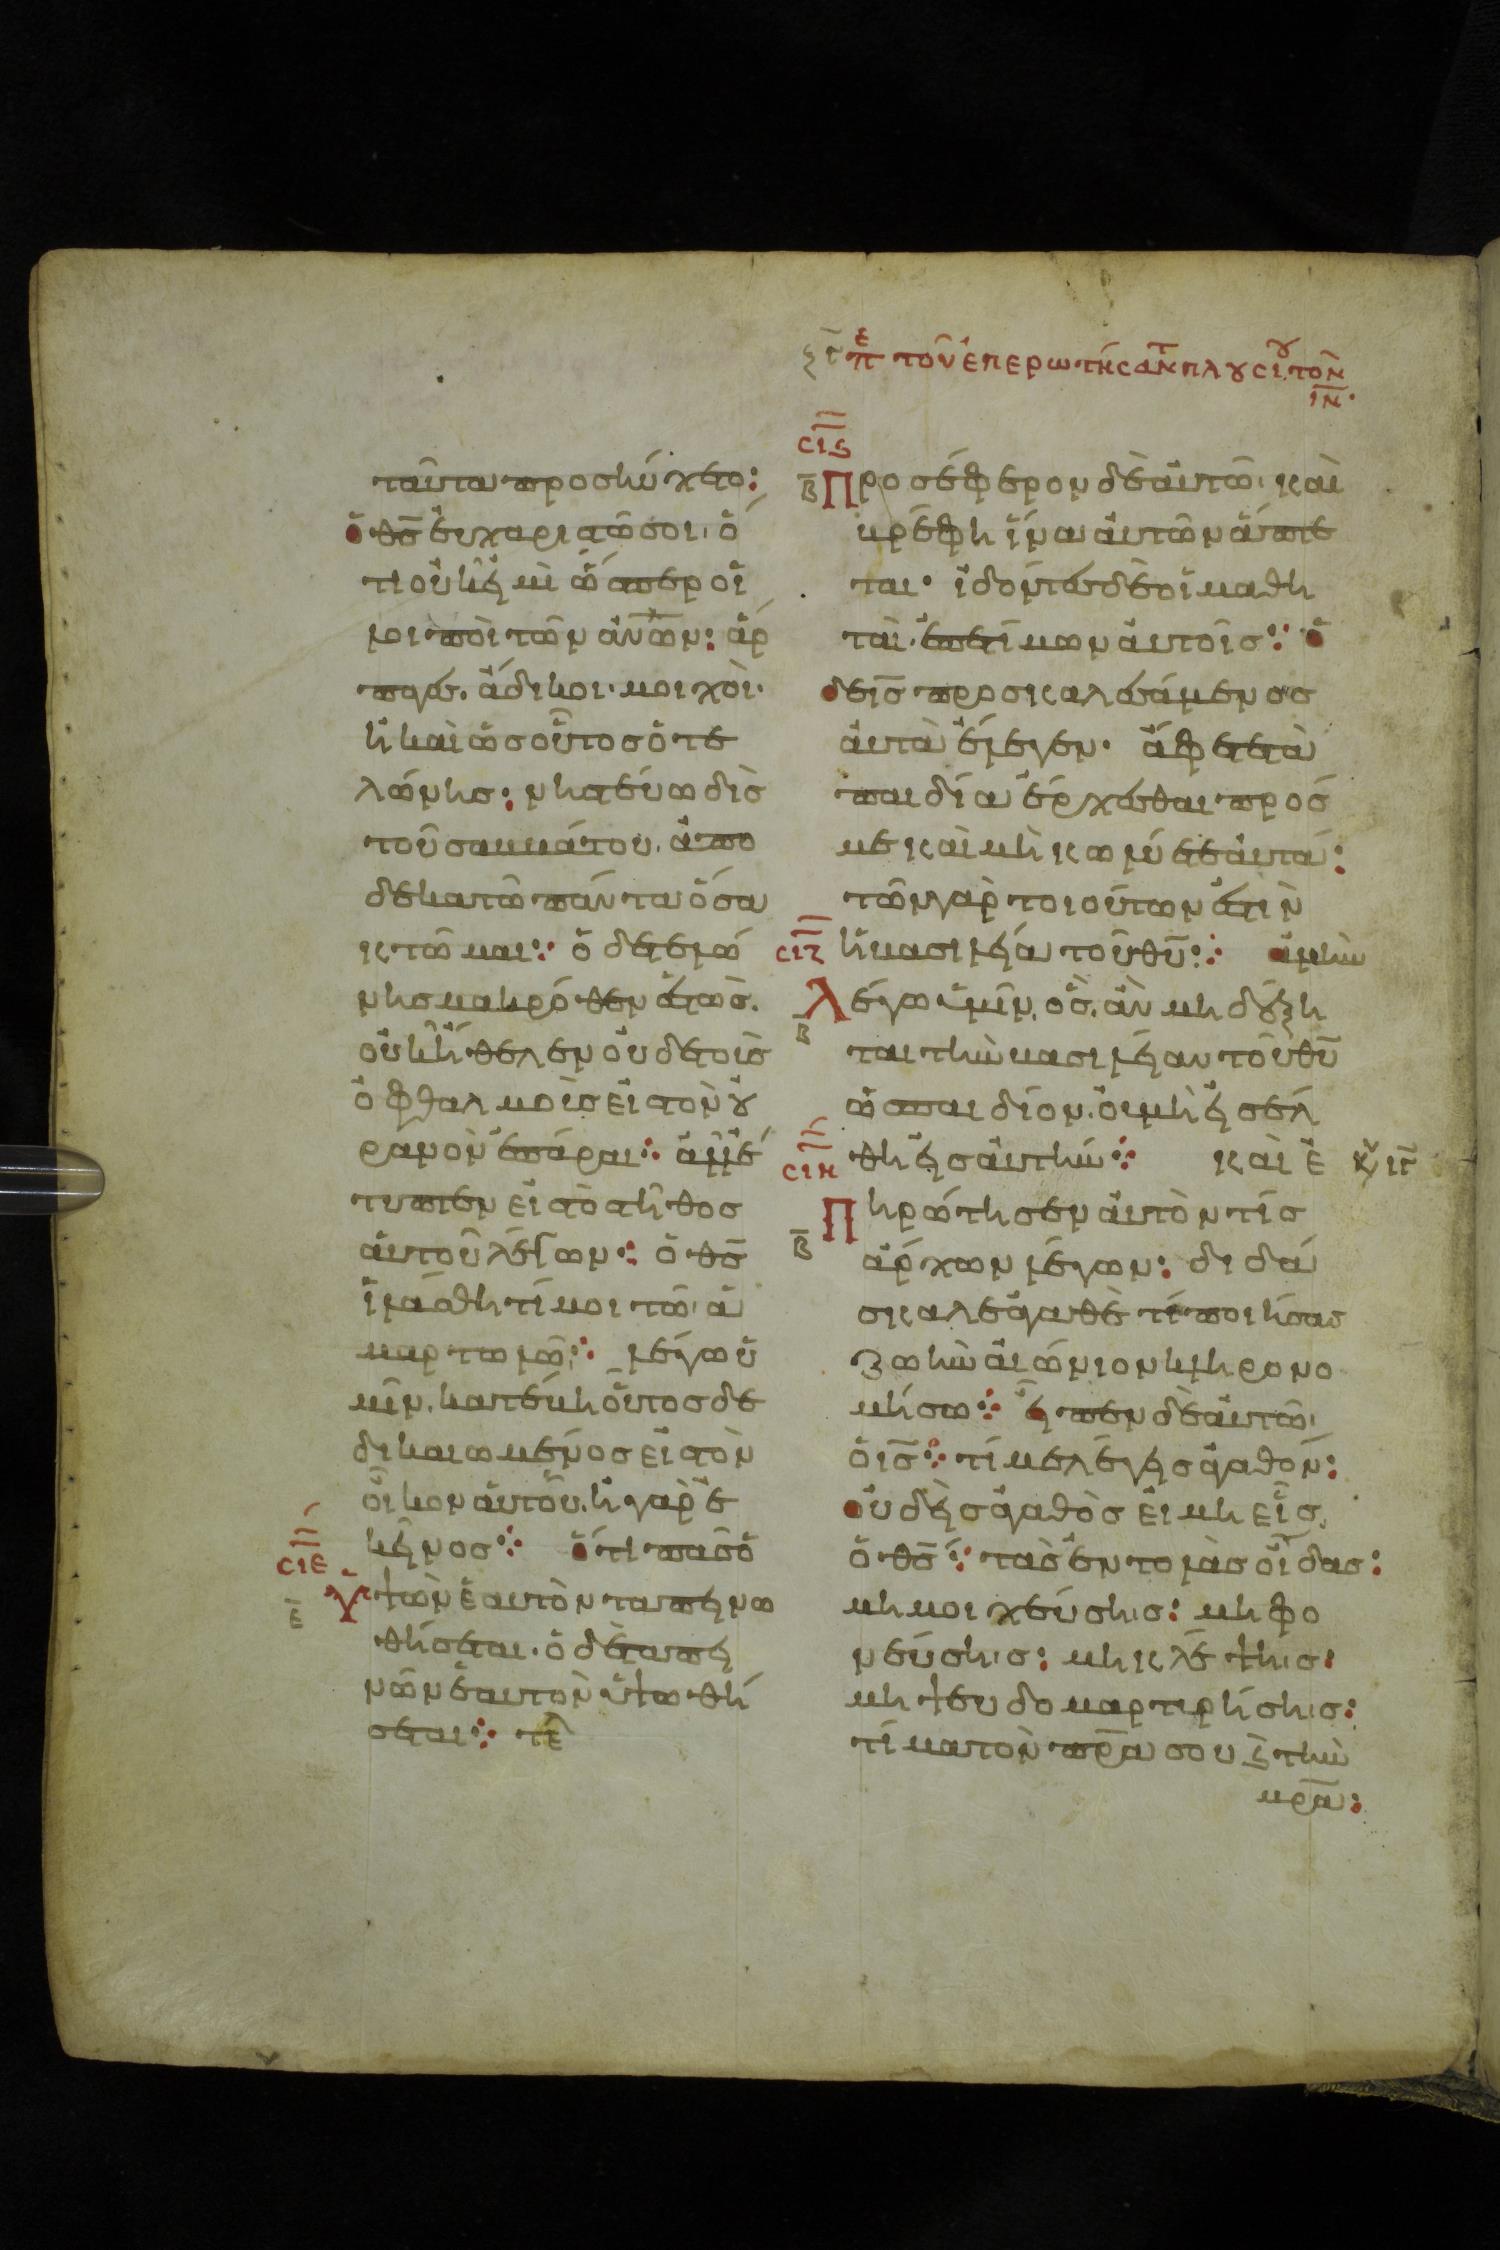 ξγ πε τοῦ ἐπερωτήσαντ πλουσίου τὸν
ιν.
ταῦτα προσηύχετο:
ὁ θς εὐχαριστῶ σοι, ὅ
τι οὐκ εἰμὶ ὥσπερ οἱ
λοιποὶ τῶν ἀνων: ἅρ
παγες. ἄδικοι. μοιχοὶ.
ἢ καὶ ὡς οὗτος ὁ τε
λώνης: νηστεύω δὶς
τοῦ σαββάτου. ἀπο
δεκατῶ πάντα ὅσα
κτῶμαι: ὁ δε τελώ
νης μακρόθεν ἑστὼς.
οὐκ ἤθελεν οὐδε τοὶς
ὀφθαλμοὶς εἰς τὸν οὐ
ρανὸν ἐπάραι: ἀλλ' ἔ
τυπτεν εἰς τὸ στῆθος
αὐτοῦ λέγων: ὁ θς
ἱλάσθητί μοι τῶ ἁ
μαρτωλῶ: λέγω ὑ
μῖν, κατέβη οὗτος δε
δικαιωμένος εἰς τὸν
οἶκον αὐτοῦ. ἢ γὰρ ἐ
κεῖνος: ὅτι πᾶς ὁ
σιε
ε Ὑψῶν ἑαυτὸν ταπεινω
θήσεται. ὁ δὲ ταπει
νῶν ἑαυτὸν ὑψωθή
σεται: τέ
σις
β Προσέφερον δὲ αὐτῶ, καὶ
βρέφη ἵνα αὐτῶν ἅπτε
ται. ἰδόντες δὲ οἱ μαθη
ταὶ. ἐπετίμων αὐτοῖς: ὁ
δὲ ις προσκαλεσάμενος
αὐτὰ ἔλεγεν. ἄφετε τὰ
παιδία ἔρχεσθαι πρός
με καὶ μὴ κωλύετε αὐτά:
τῶν γὰρ τοιούτων ἐστὶν
σιζ ἡ βασιλεία τοῦ θυ: ἀμὴν
β Λέγω ὑμῖν, ὃς ἂν μη δέξη
ται τὴν βασιλείαν τοῦ θυ
ὡς παιδίον, οὐ μὴ εἰσέλ
σιη θη εἰς αὐτήν: καὶ ἐ κυ ιγ
β Πηρώτησεν αὐτὸν τίς
ἄρχων λέγων: διδά
σκαλε ἀγαθὲ τί ποιήσας
ζωὴν αἰώνιον κληρονο
μήσω: εἶπεν δὲ αὐτῶ,
ὁ ις: τί με λέγεις ἀγαθόν:
οὐδεὶς ἀγαθὸς εἰ μη εἷς,
ὁ θς: τὰς ἐντολὰς οἶδας:
μη μοιχεύσης: μη φο
νεύσης: μη κλέψης:
μη ψευδομαρτυρήσης:
τίμα τὸν πρα σου κ τὴν
μρα: